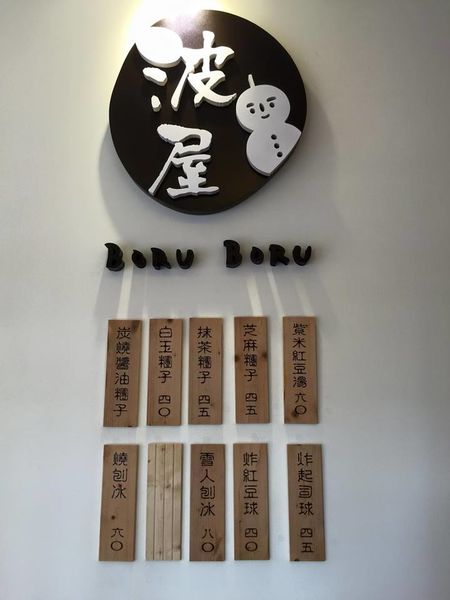 波屋
BORU BORU
紫米紅豆湯 六〇
芝麻糰子 四五
抹茶糰子 四五
白玉糰子 四〇
炭燒醬油糰子
炸起司球 四五
炸紅豆球 四〇
雪人刨冰 八〇
燒刨冰 六〇